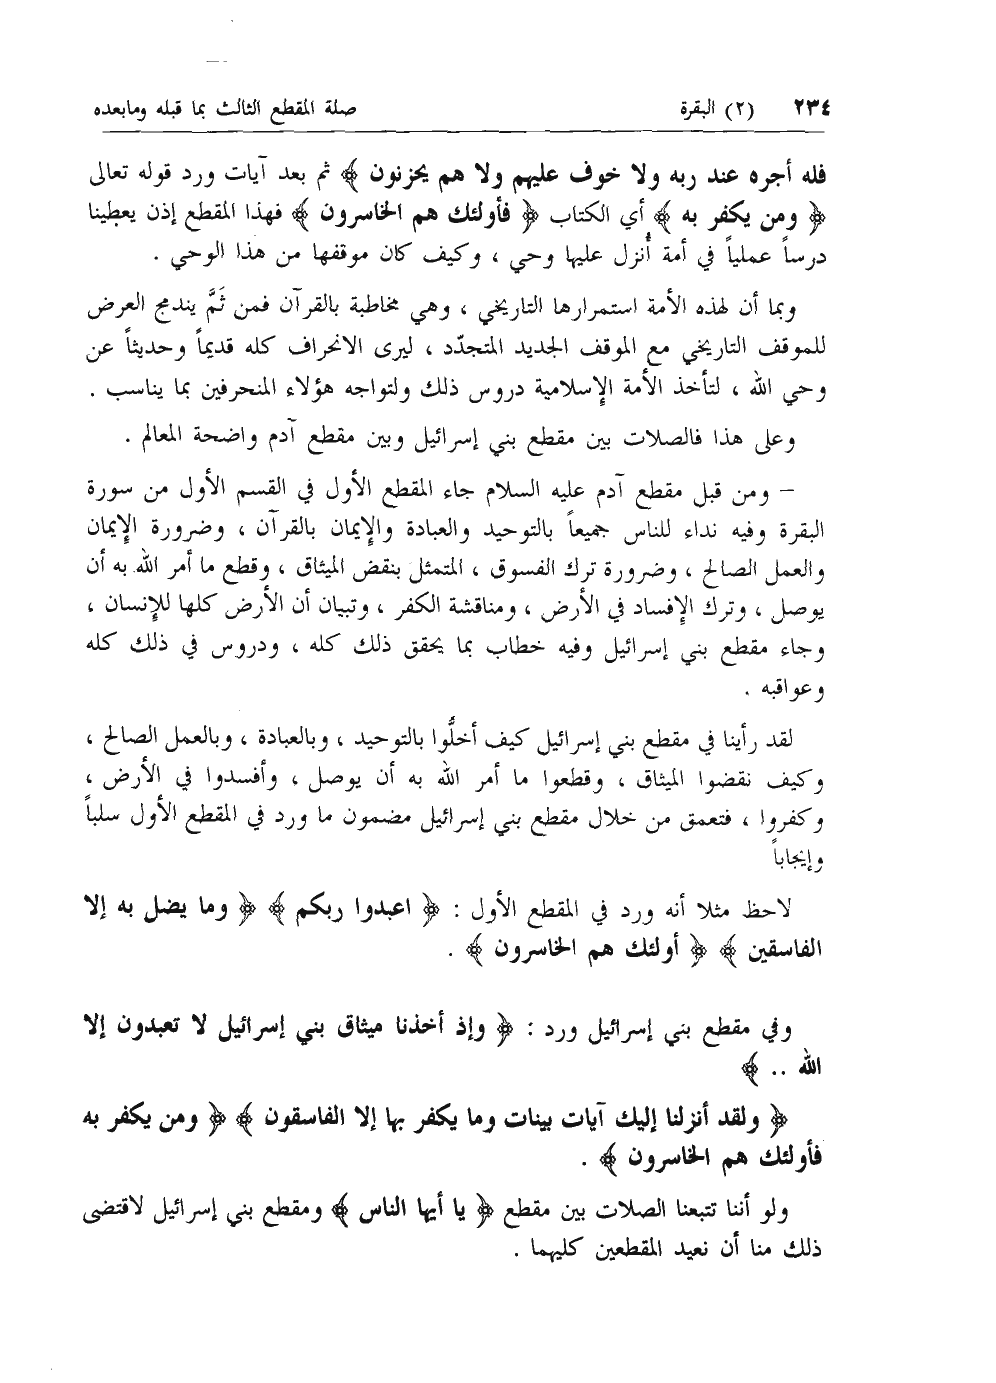 ٢٣٤ (٢) البقرة صلة المقطع الثالث بما قبله ومابعده
فله أجره عند ربه ولا خوف عليهم ولا هم يحزنون ﴾ ثم بعد آيات ورد قوله تعالى
﴿ ومن يكفر به ﴾ أي الكتاب ﴿ فأولئك هم الخاسرون ﴾ فهذا المقطع إذن يعطينا
درساً عملياً في أمة أُنزل عليها وحي ، وكيف كان موقفها من هذا الوحي .
وبما أن لهذه الأمة استمرارها التاريخي ، وهي مخاطبة بالقرآن فمن ثَمَّ يندمج العرض
للموقف التاريخي مع الموقف الجديد المتجدّد ، ليرى الانحراف كله قديماً وحديثاً عن
وحي الله ، لتأخذ الأمة الإسلامية دروس ذلك ولتواجه هؤلاء المنحرفين بما يناسب .
وعلى هذا فالصلات بين مقطع بني إسرائيل وبين مقطع آدم واضحة المعالم .
– ومن قبل مقطع آدم عليه السلام جاء المقطع الأول في القسم الأول من سورة
البقرة وفيه نداء للناس جميعاً بالتوحيد والعبادة والإيمان بالقرآن ، وضرورة الإيمان
والعمل الصالح ، وضرورة ترك الفسوق ، المتمثل بنقض الميثاق ، وقطع ما أمر الله به أن
يوصل ، وترك الإفساد في الأرض ، ومناقشة الكفر ، وتبيان أن الأرض كلها للإنسان ،
وجاء مقطع بني إسرائيل وفيه خطاب بما يحقق ذلك كله ، ودروس في ذلك كله
وعواقبه .
لقد رأينا في مقطع بني إسرائيل كيف أخلُّوا بالتوحيد ، وبالعبادة ، وبالعمل الصالح ،
وكيف نقضوا الميثاق ، وقطعوا ما أمر الله به أن يوصل ، وأفسدوا في الأرض ،
وكفروا ، فتعمق من خلال مقطع بني إسرائيل مضمون ما ورد في المقطع الأول سلباً
وإيجاباً
لاحظ مثلا أنه ورد في المقطع الأول : ﴿ اعبدوا ربكم ﴾ ﴿ وما يضل به إلا
الفاسقين ﴾ ﴿ أولئك هم الخاسرون ﴾ .
وفي مقطع بني إسرائيل ورد : ﴿ وإذ أخذنا ميثاق بني إسرائيل لا تعبدون إلا
الله .. ﴾
﴿ ولقد أنزلنا إليك آيات بينات وما يكفر بها إلا الفاسقون ﴾ ﴿ ومن يكفر به
فأولئك هم الخاسرون ﴾ .
ولو أننا تتبعنا الصلات بين مقطع ﴿ يا أيها الناس ﴾ ومقطع بني إسرائيل لاقتضى
ذلك منا أن نعيد المقطعين كليهما .